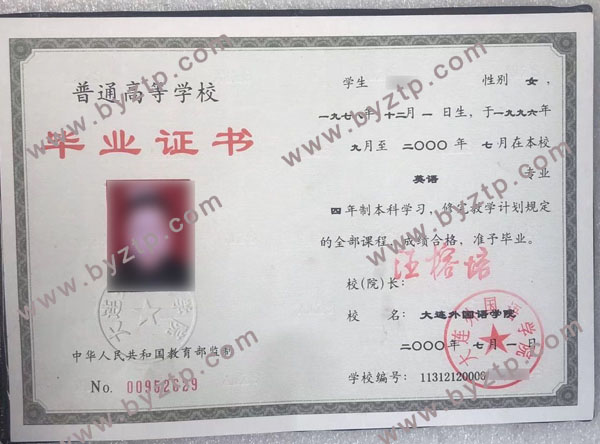 普通高等学校
毕业证书
中华人民共和国教育部监制
No. 00952629
学生 性别 女,
一九七八年十二月一日生,于一九九六年
九月至二〇〇〇年七月在本校
英语 专业
四年制本科学习,修完教学计划规定
的全部课程,成绩合格,准予毕业。
校(院)长: 汪榕培
校 名: 大连外国语学院
二〇〇〇年七月一日
学校编号: 11312120005
大连外国语学院
www.byztp.com
www.byztp.com
www.byztp.com
www.byztp.com
www.byztp.com